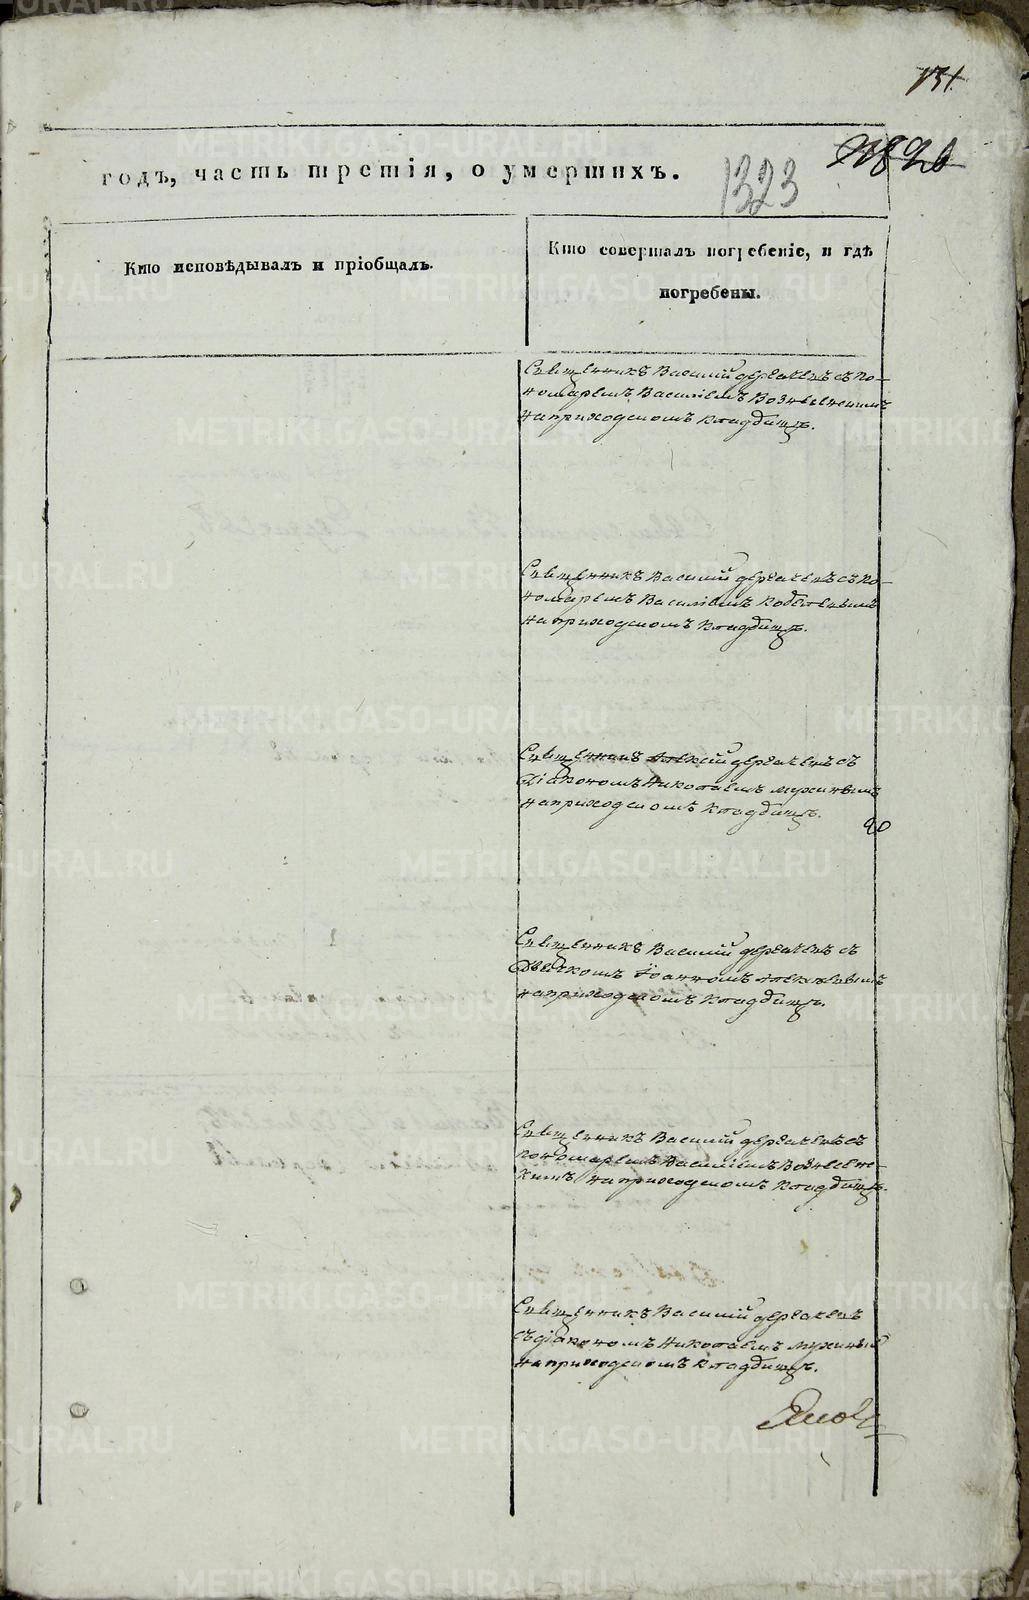 131
годъ, часть третія, о умершихъ.
1323
Кто исповѣдывалъ и пріобщалъ.
Кто совершалъ погребеніе, и гдѣ
погребены.
Священникъ Василій съ по-
номаремъ Василіемъ Вознесенскимъ
на приходскомъ кладбищѣ.
Священникъ Василій съ по-
номаремъ Василіемъ
на приходскомъ кладбищѣ.
Священникъ Алексій съ
Діакономъ Николаемъ Мухинымъ
на приходскомъ кладбищѣ.
Священникъ Василій съ
Дьячкомъ Іоанномъ
на приходскомъ кладбищѣ.
Священникъ Василій съ
пономаремъ Василіемъ Вознесен-
скимъ на приходскомъ кладбищѣ.
Священникъ Василій
съ діакономъ Николаемъ Мухинымъ
на приходскомъ кладбищѣ.
METRIKI.GASO-URAL.RU